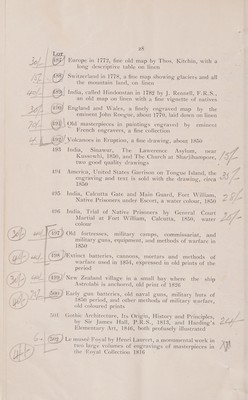 28
Lot
487 Europe in 1772, fine old map by Thos. Kitchin, with a
long descriptive table on linen
488 Switzerland in 1778, a fine map showing glaciers and all
the mountain land, on linen
489 India, called Hindoostan in 1782 by J. Rennell, F.R.S.,
an old map on linen with a fine vignette of natives
490 England and Wales, a finely engraved map by the
eminent John Rocque, about 1770, laid down on linen
491 Old masterpieces in paintings engraved by eminent
French engravers, a fine collection
492 Volcanoes in Eruption, a fine drawing, about 1850
493 India, Sanawur, The Lawrence Asylum, near
Kussowlii, 1850, and The Church at Sharjihampore,
two good quality drawings
494 America, United States Garrison on Tongue Island, the
engraving and text is sold with the drawing, circa
1850
495 India, Calcutta Gate and Main Guard, Fort William,
Native Prisoners under Escort, a water colour, 1850
496 India, Trial of Native Prisoners by General Court
Martial at Fort William, Calcutta, 1850, water
colour
497 Old fortresses, military camps, commissariat, and
military guns, equipment, and methods of warfare in
1850
498 Extinct batteries, cannons, mortars and methods of
warfare used in 1834, expressed in old prints of the
period
499 New Zealand village in a small bay where the ship
Astrolabe is anchored, old print of 1826
500 Early gun batteries, old naval guns, military hats of
1850 period, and other methods of military warfare,
old coloured prints
501 Gothic Architecture, Its Origin, History and Principles,
by Sir James Hall, P.R.S., 1813, and Harding's
Elementary Art, 1846, both profusely illustrated
502 Le museé Royal by Henri Laurent, a monumental work in
two large volumes of engravings of masterpieces in
the Royal Collection 1816